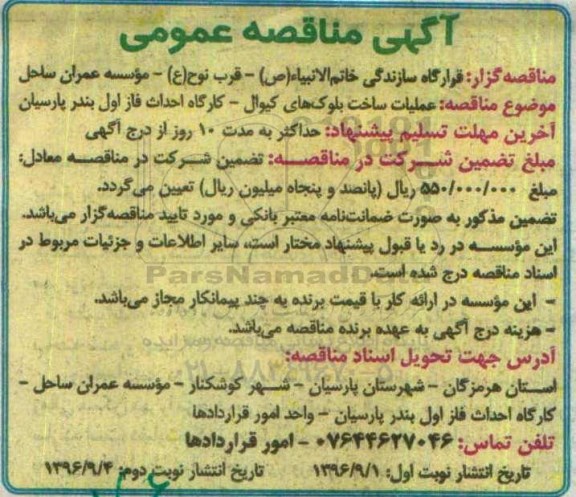 آگهی مناقصه عمومی
مناقصه‌گزار: قرارگاه سازندگی خاتم‌الانبیاء(ص) - قرب نوح(ع) - مؤسسه عمران ساحل
موضوع مناقصه: عملیات ساخت بلوک‌های کیوال - کارگاه احداث فاز اول بندر پارسیان
آخرین مهلت تسلیم پیشنهاد: حداکثر به مدت ۱۰ روز از درج آگهی
مبلغ تضمین شرکت در مناقصه: تضمین شرکت در مناقصه معادل:
مبلغ ۵۵۰/۰۰۰/۰۰۰ ریال (پانصد و پنجاه میلیون ریال) تعیین می‌گردد.
تضمین مذکور به صورت ضمانت‌نامه معتبر بانکی و مورد تایید مناقصه‌گزار می‌باشد.
این مؤسسه در رد یا قبول پیشنهاد مختار است، سایر اطلاعات و جزئیات مربوط در
اسناد مناقصه درج شده است.
ParsNamadData
- این مؤسسه در ارائه کار با قیمت برنده به چند پیمانکار مجاز می‌باشد.
- هزینه درج آگهی به عهده برنده مناقصه می‌باشد.
آدرس جهت تحویل اسناد مناقصه:
استان هرمزگان - شهرستان پارسیان - شهر کوشکنار - مؤسسه عمران ساحل -
کارگاه احداث فاز اول بندر پارسیان - واحد امور قراردادها
تلفن تماس: ۰۷۶۴۴۶۲۷۰۴۶ - امور قراردادها
تاریخ انتشار نوبت اول: ۱۳۹۶/۹/۱ تاریخ انتشار نوبت دوم: ۱۳۹۶/۹/۴